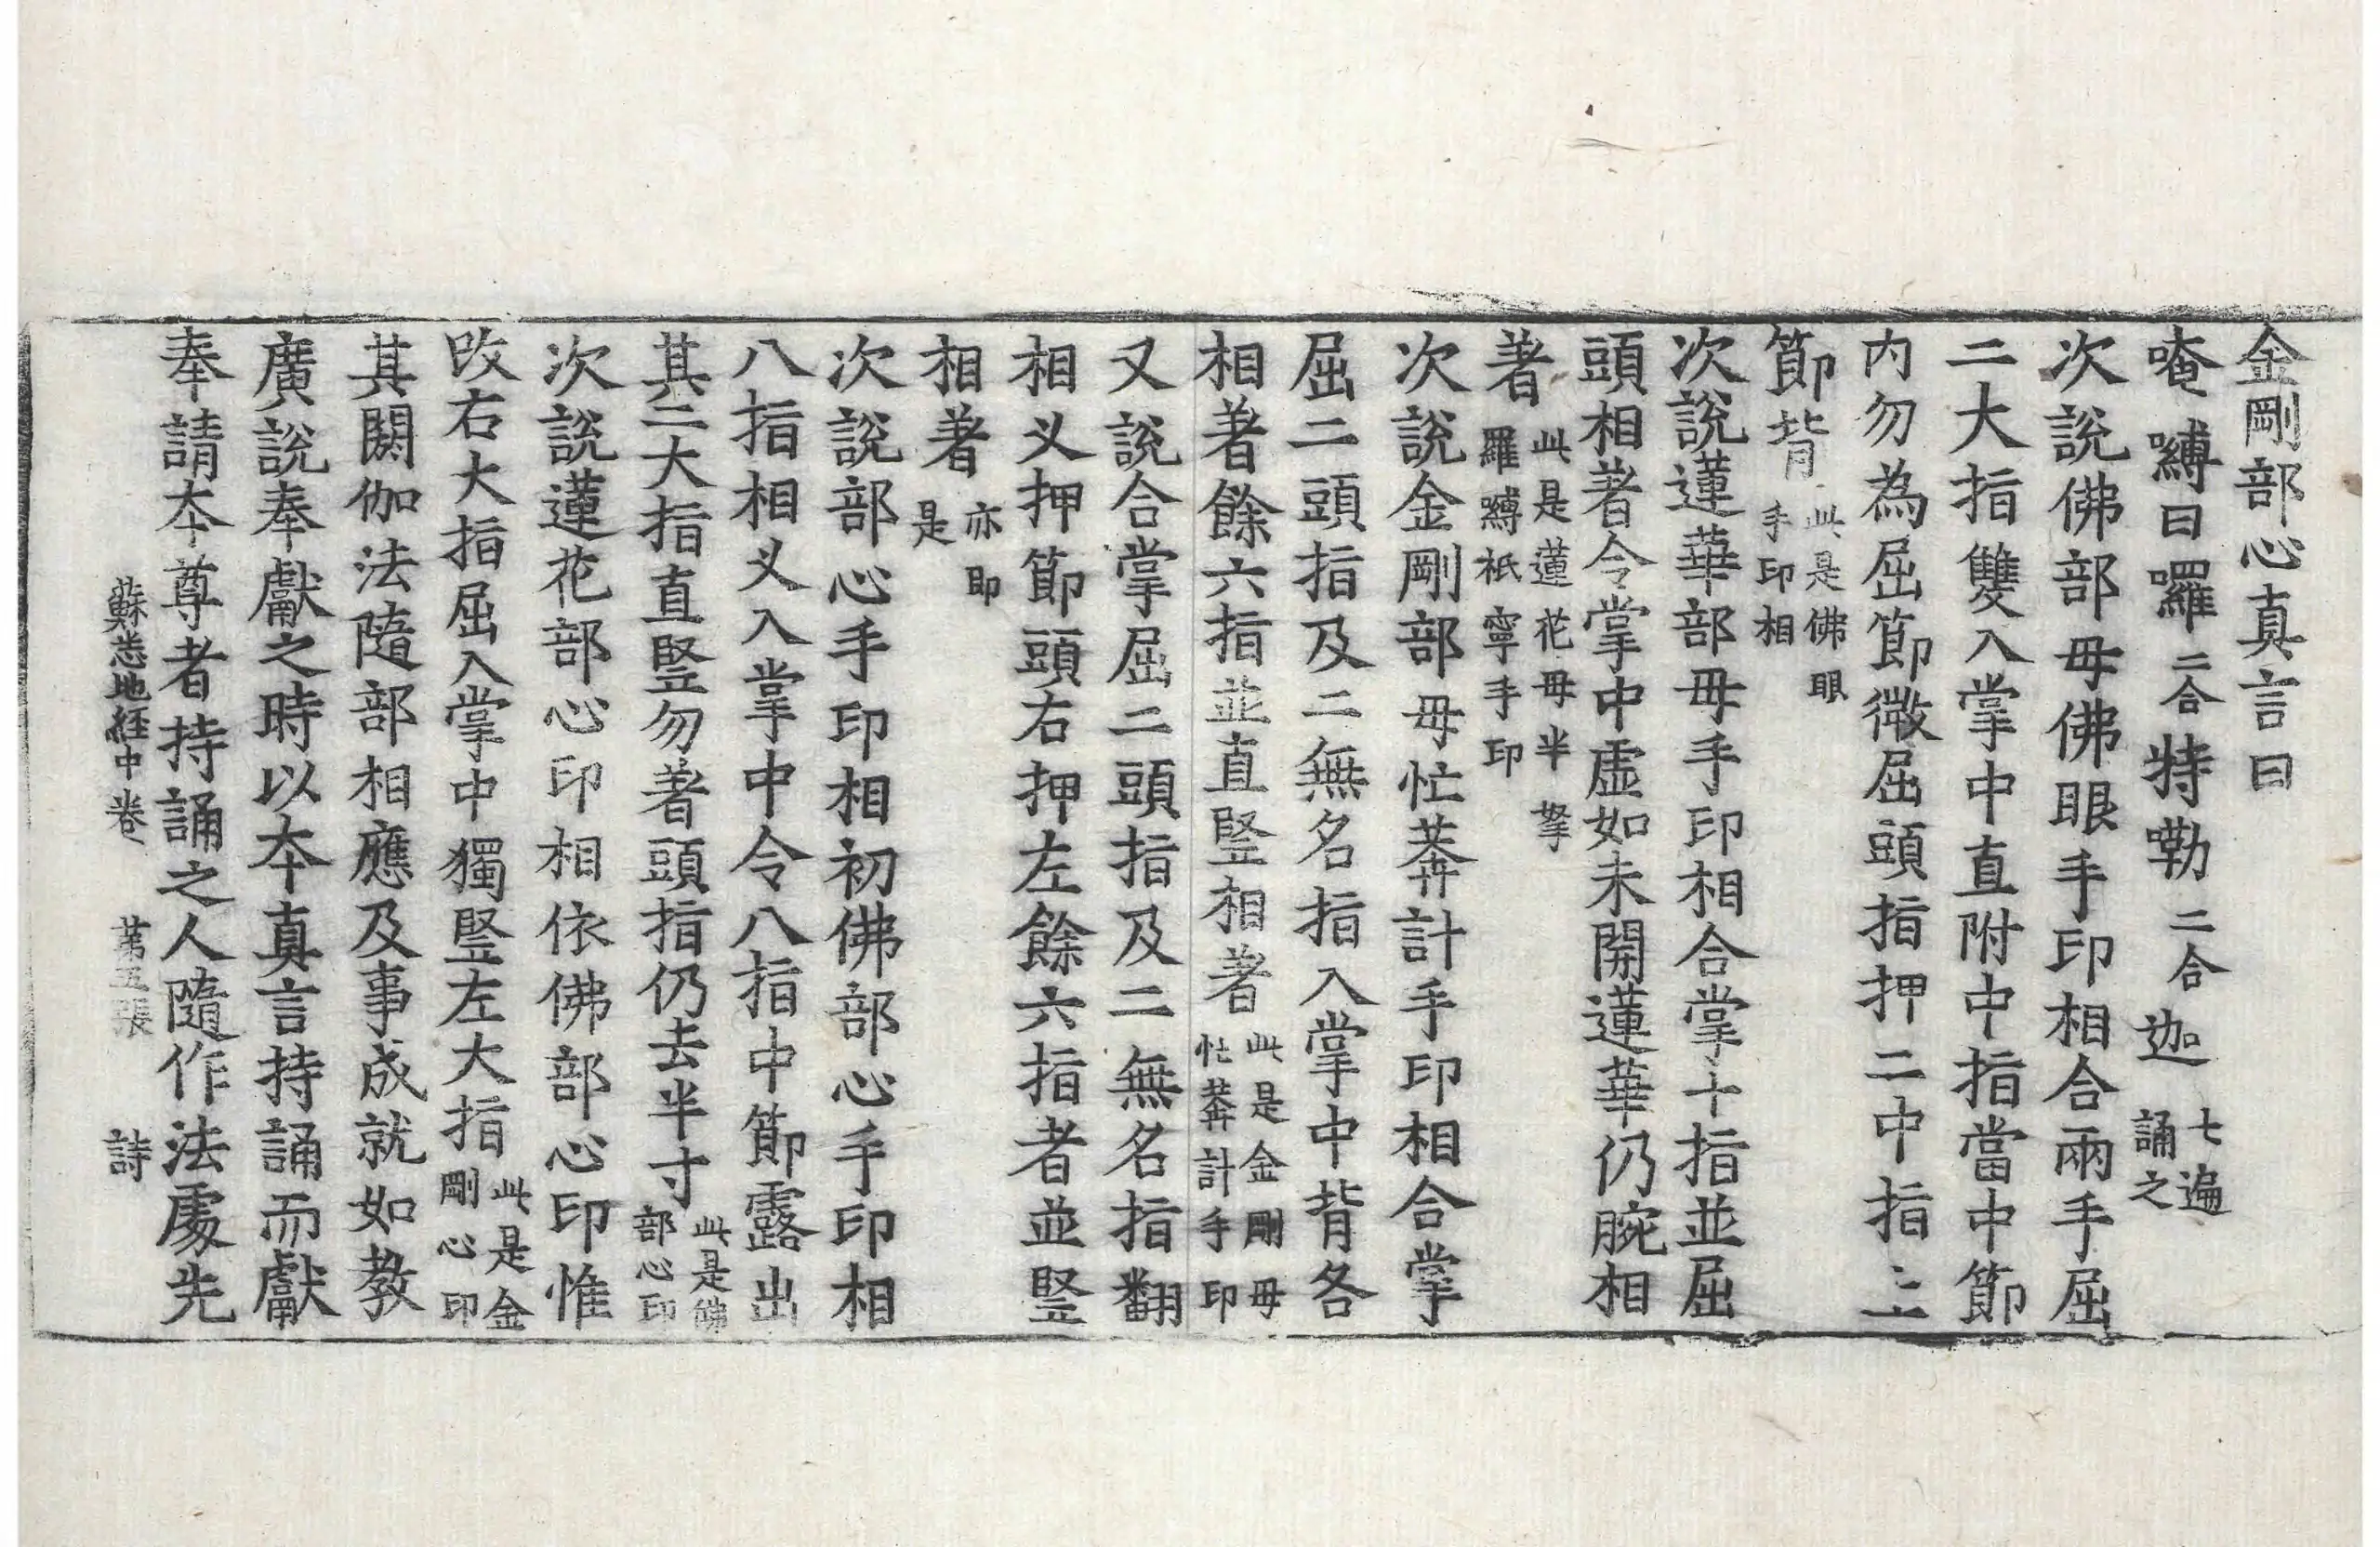 金剛部心真言曰
唵嚩日囉二合特嘞二合迦七遍誦之
次說佛部母佛眼手印相合兩手屈
二大指雙入掌中直附中指當中節
內勿為屈節微屈頭指押二中指上
節背此是佛眼手印相
次說蓮華部母手印相合掌十指並屈
頭相著令掌中虛如未開蓮華仍腕相
著此是蓮花母半拏羅嚩秖寧手印
次說金剛部母忙莾計手印相合掌
屈二頭指及二無名指入掌中背各
相著餘六指並直豎相著此是金剛母忙莾計手印
又說合掌屈二頭指及二無名指翻
相叉押節頭右押左餘六指者並豎
相著亦即是
次說部心手印相初佛部心手印相
八指相叉入掌中令八指中節露出
其二大指直豎勿著頭指仍去半寸此是佛部心印
次說蓮花部心印相依佛部心印惟
改右大指屈入掌中獨豎左大指此是金剛心印
其閼伽法隨部相應及事成就如教
廣說奉獻之時以本真言持誦而獻
奉請本尊者持誦之人隨作法處先
蘇悉地経中卷 苐五張 詩